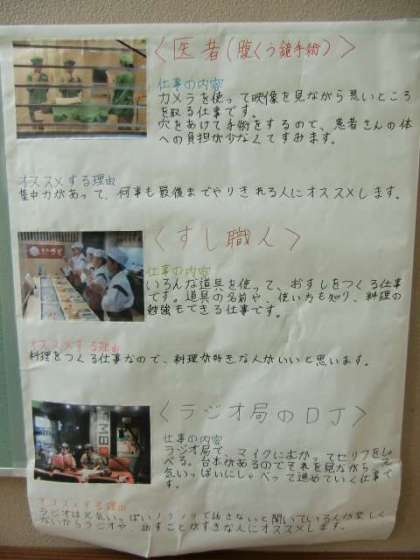 〈医者(腹くう鏡手術)〉
仕事の内容
カメラを使って映像を見ながら悪いところ
を取る仕事です。
穴をあけて手術をするので、患者さんの体
への負担が少なくてすみます。
オススメする理由
集中力があって、何事も最後までやりきれる人にオススメします。
〈すし職人〉
仕事の内容
いろんな道具を使って、おすしをつくる仕事
です。道具の名前や、使い方も知り、料理の
勉強もできる仕事です。
オススメする理由
料理をつくる仕事なので、料理が好きな人がいいと思います。
〈ラジオ局のDJ〉
仕事の内容
ラジオ局で、マイクにむかってセリフをしゃ
べる。台本があるのでそれを見ながら
気いっぱいにしゃべって進めていく仕事で
す。
オススメする理由
ラジオは元気いっぱいノリノリで話さないと聞いている人が楽しく
ないからラジオや、話すことがすきな人にオススメします。